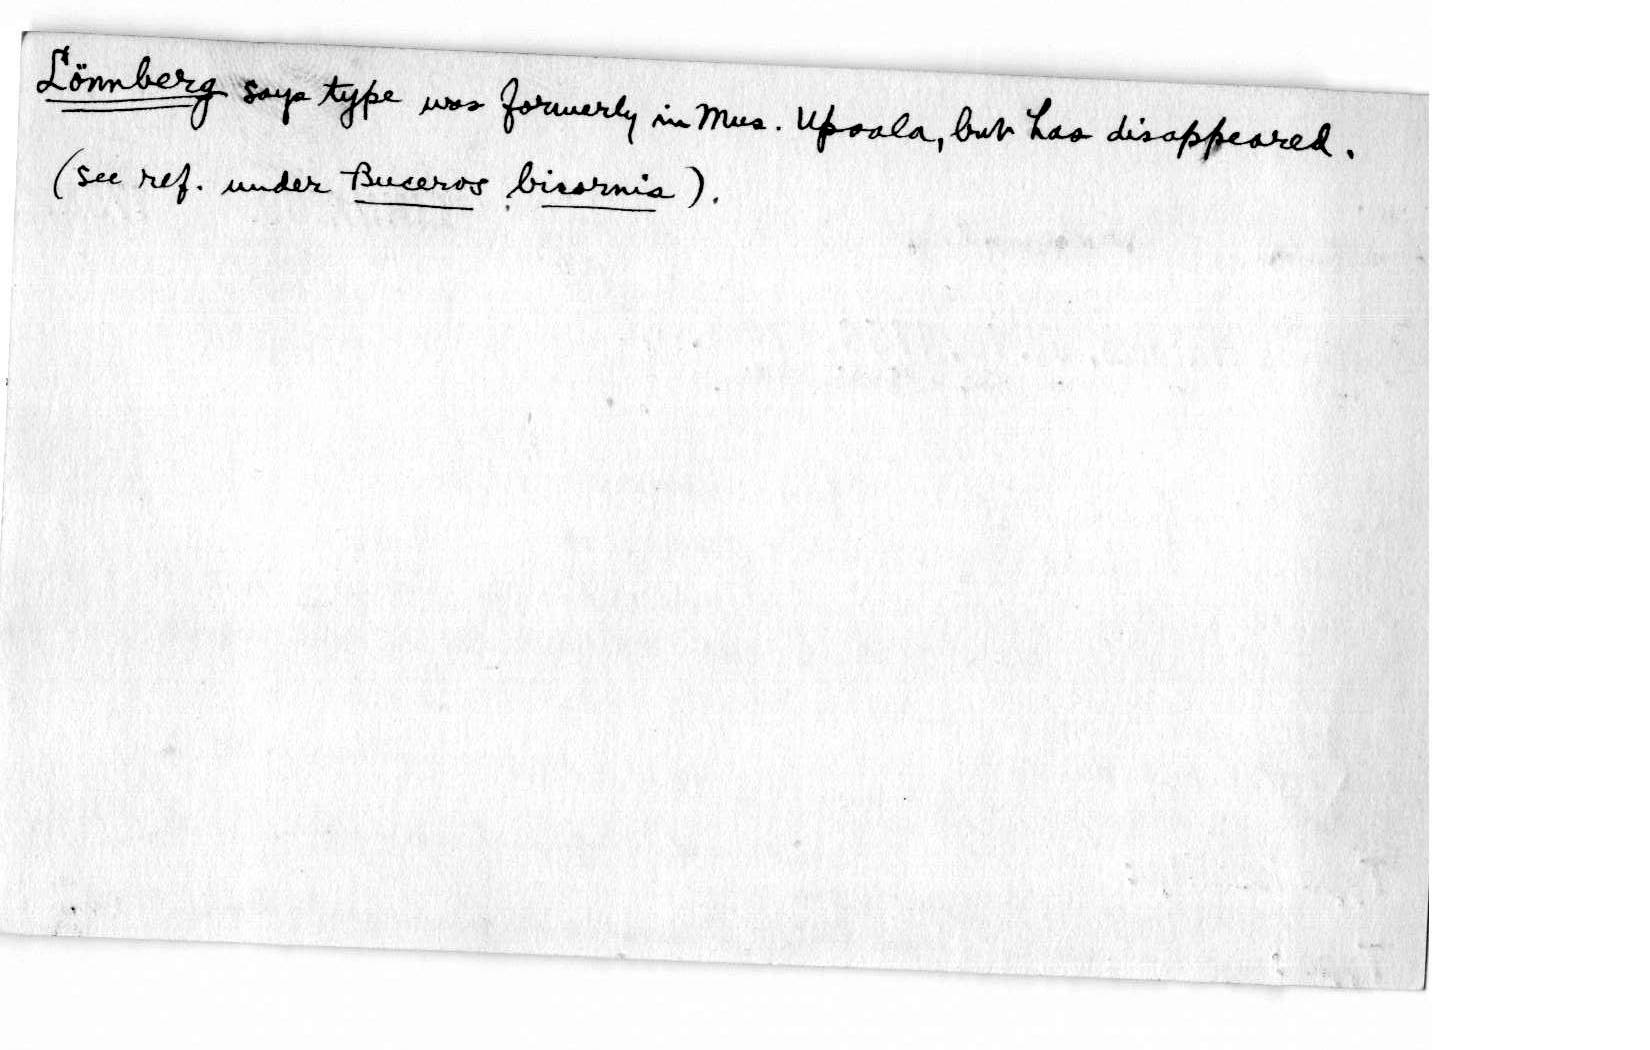 Lönnberg says type was formerly in Mus. Upsala, but has disappeared.
(see ref. under Buceros bicornis).